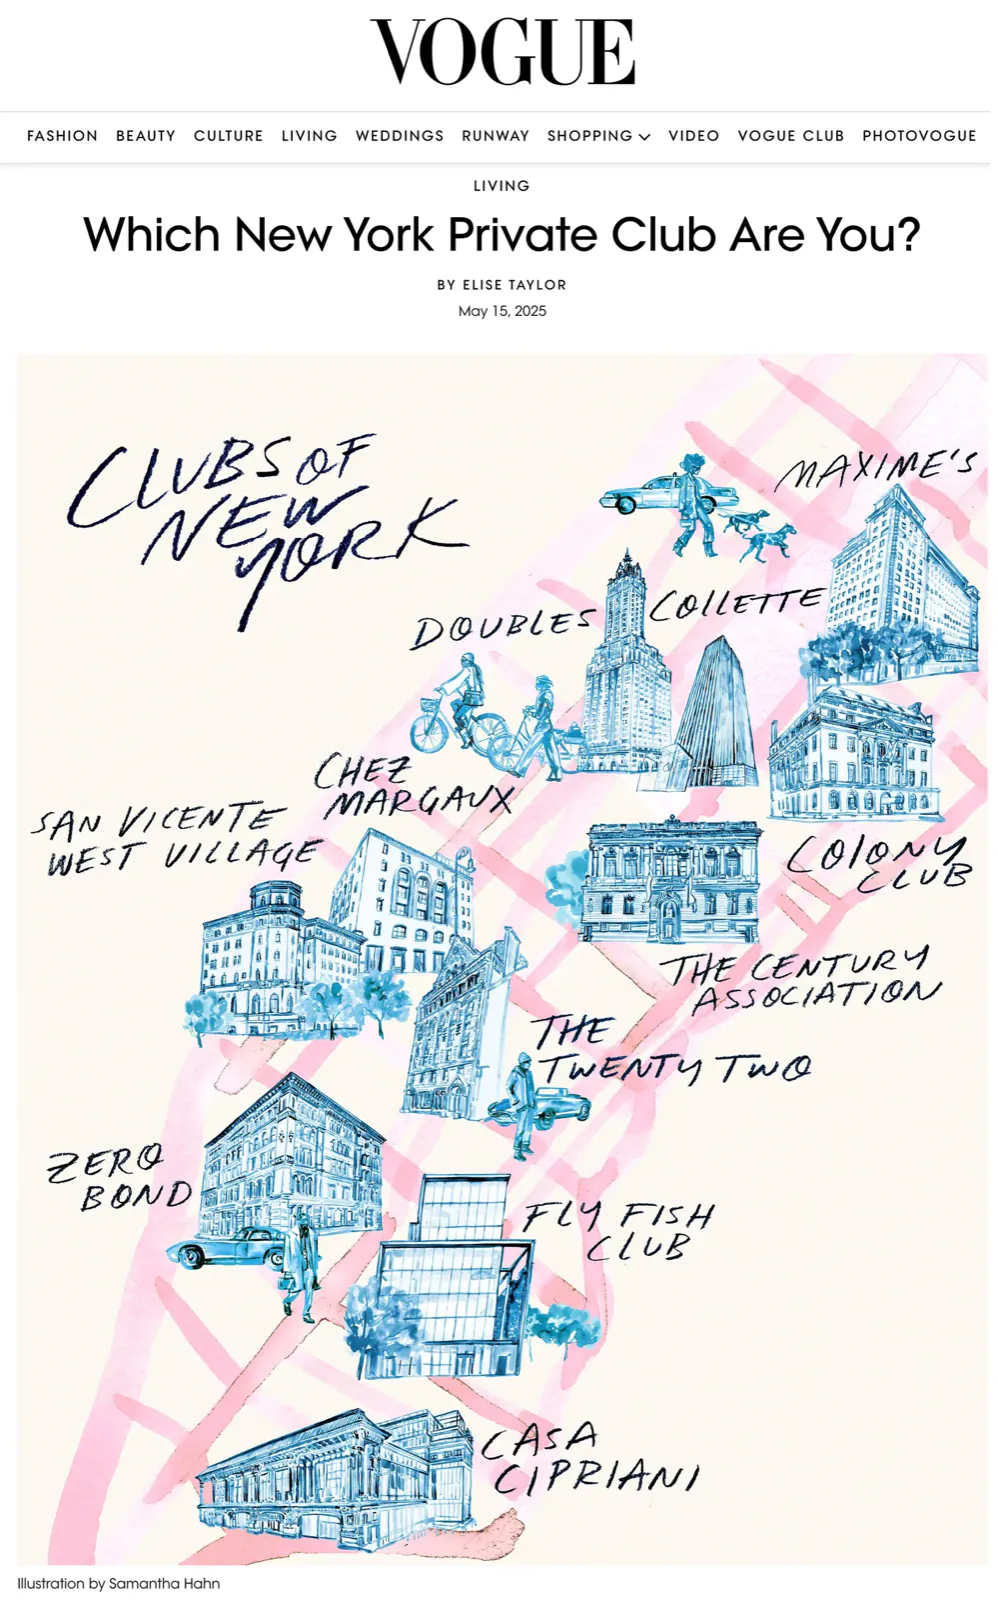 VOGUE
FASHION BEAUTY CULTURE LIVING WEDDINGS RUNWAY SHOPPING VIDEO VOGUE CLUB PHOTOVOGUE
LIVING
Which New York Private Club Are You?
BY ELISE TAYLOR
May 15, 2025
CLUBS OF
NEW
YORK
MAXIME'S
DOUBLES
COLLETTE
CHEZ
MARGAUX
SAN VICENTE
WEST VILLAGE
COLONY
CLUB
THE CENTURY
ASSOCIATION
THE
TWENTY TWO
ZERO
BOND
FLY FISH
CLUB
CASA
CIPRIANI
Illustration by Samantha Hahn